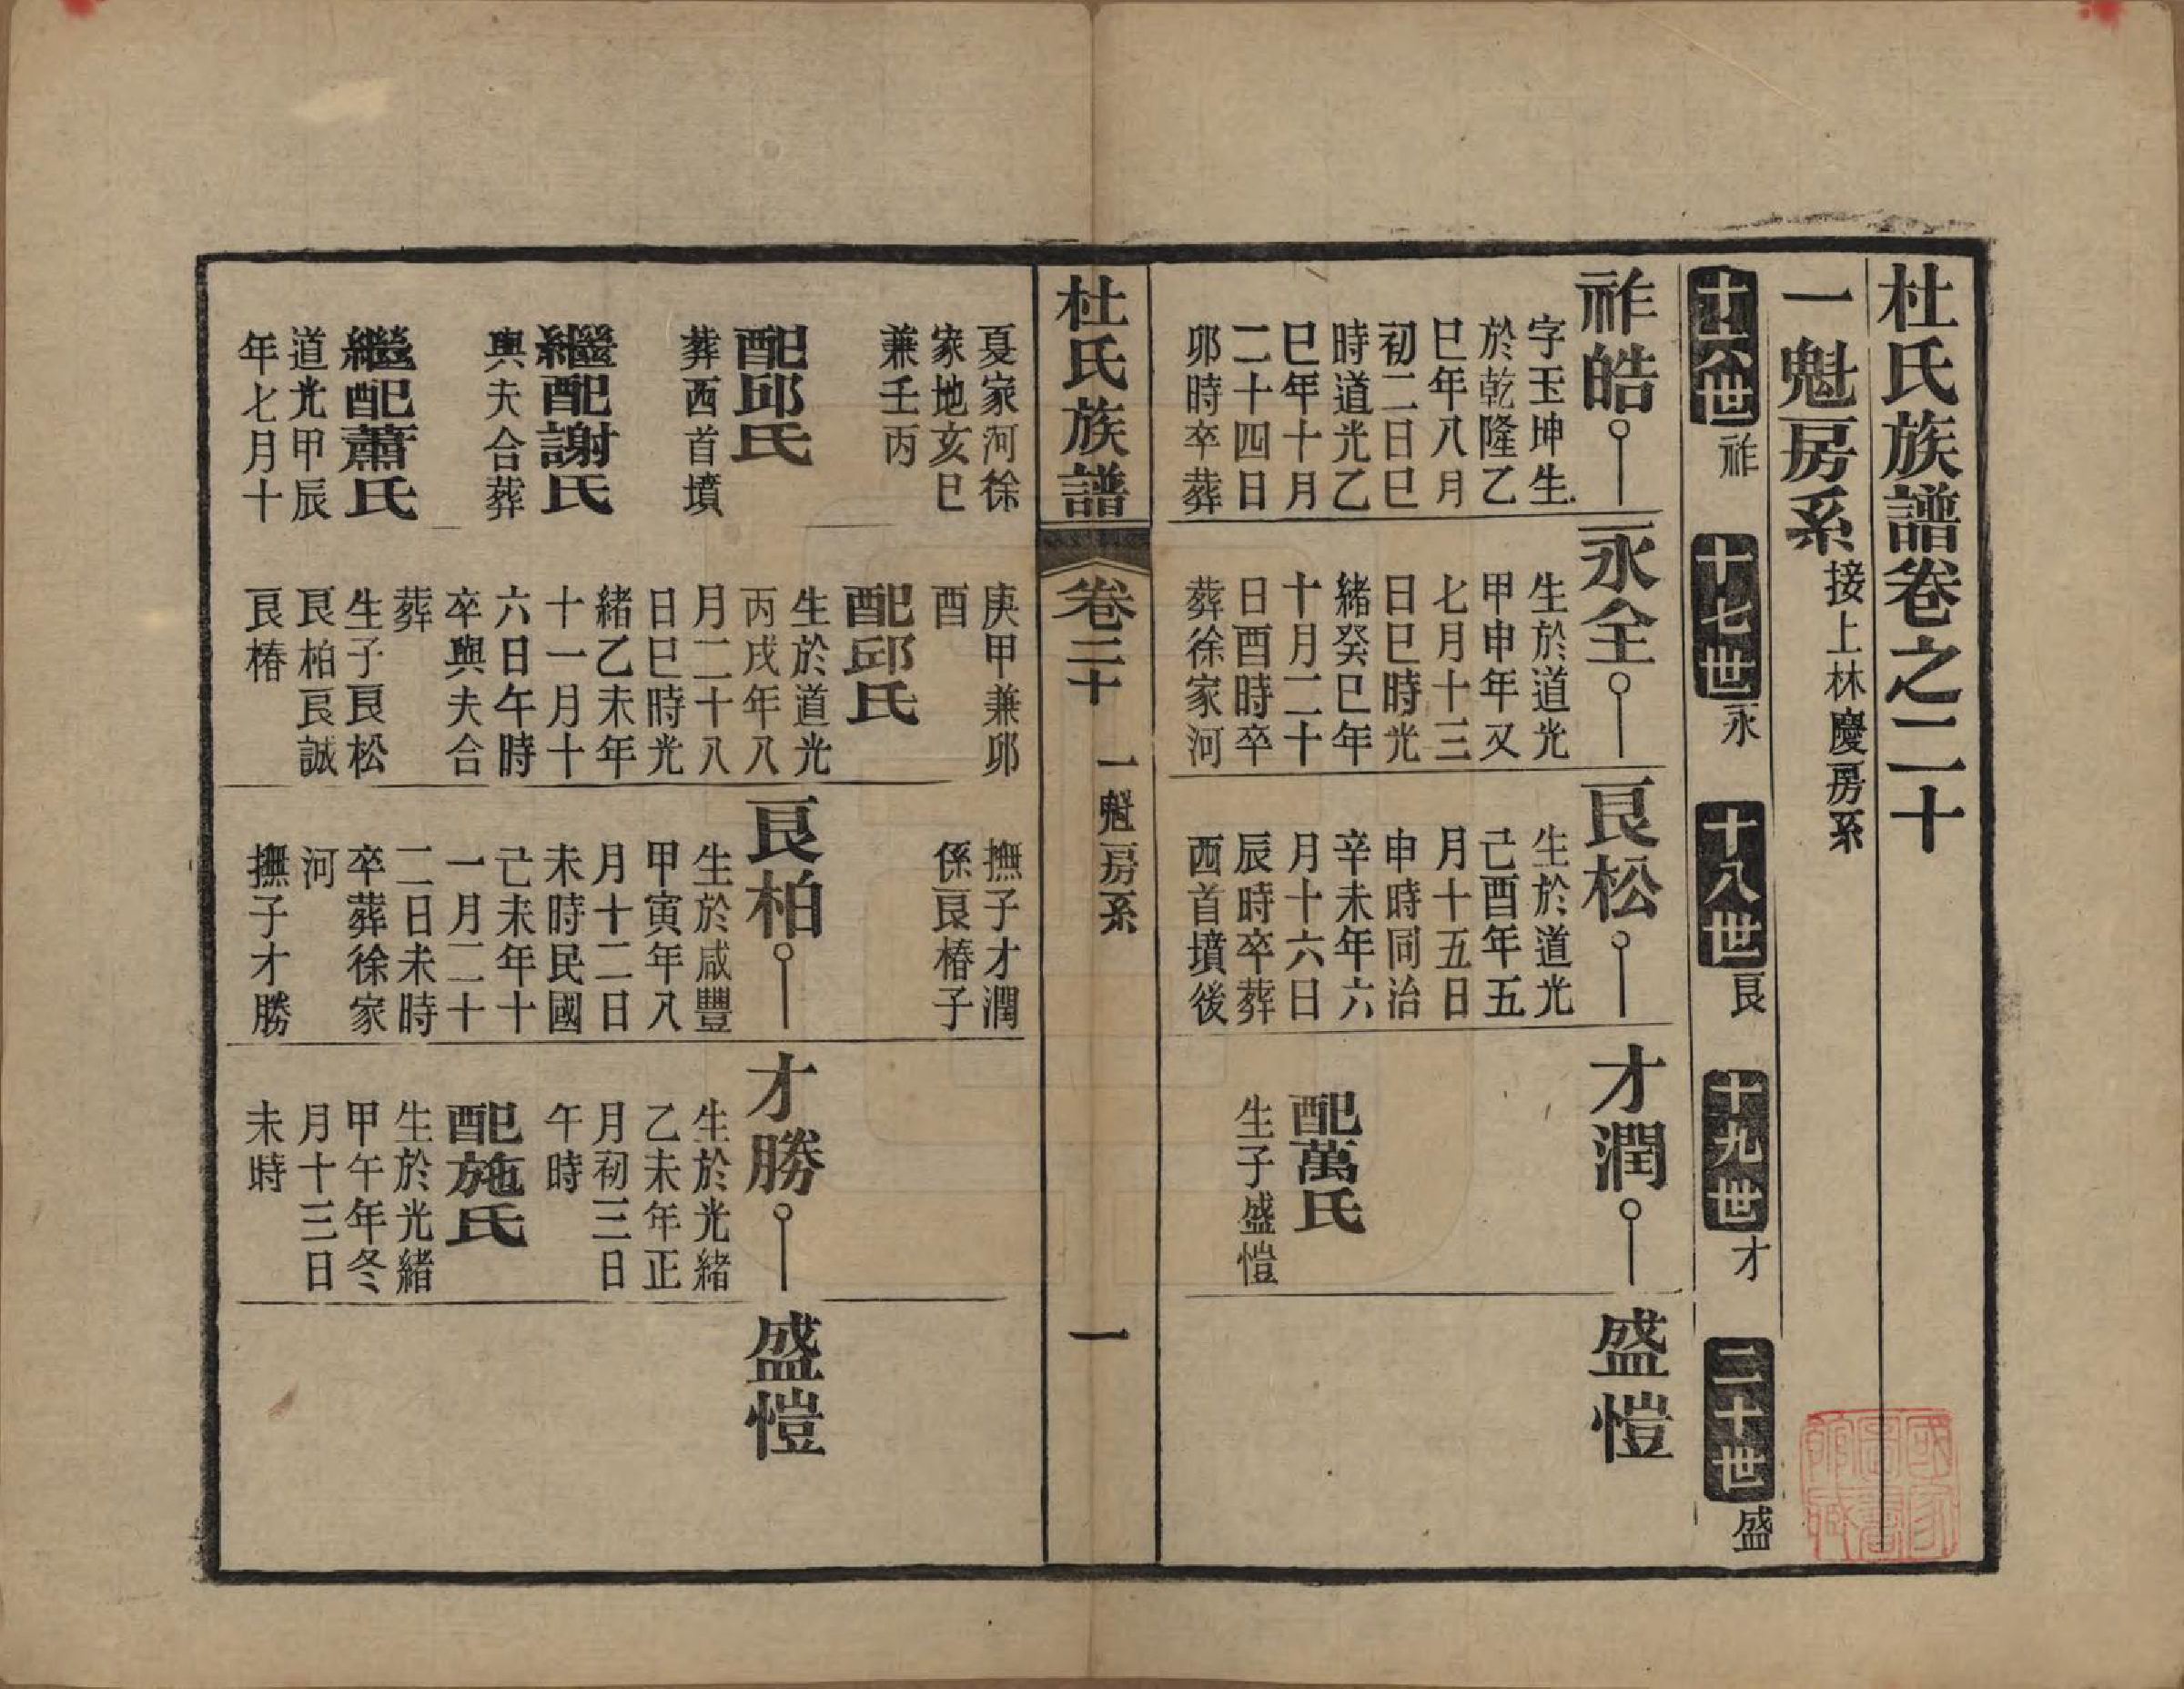 杜氏族譜卷之二十
一魁房系接上林慶房系
十六世祚
十七世永
十八世艮
十九世才
二十世盛
祚皓
字玉坤生
於乾隆乙
巳年八月
初二日巳
時道光乙
巳年十月
二十四日
卯時卒葬
永全
生於道光
甲申年又
七月十三
日巳時光
緒癸巳年
十月二十
日酉時卒
葬徐家河
艮松
生於道光
己酉年五
月十五日
申時同治
辛未年六
月十六日
辰時卒葬
西首墳後
才潤
配萬氏
生子盛愷
盛愷
杜氏族譜
卷二十
一魁房系
一
夏家河徐
家地亥巳
兼壬丙
配邱氏
葬西首墳
繼配謝氏
與夫合葬
繼配蕭氏
道光甲辰
年七月十
庚甲兼卯
酉
配邱氏
生於道光
丙戌年八
月二十八
日巳時光
緒乙未年
十一月十
六日午時
卒與夫合
葬
生子艮松
艮柏艮誠
艮椿
撫子才潤
係艮椿子
艮柏
生於咸豐
甲寅年八
月十二日
未時民國
己未年十
一月二十
二日未時
卒葬徐家
河
撫子才勝
才勝
生於光緒
乙未年正
月初三日
午時
配施氏
生於光緒
甲午年冬
月十三日
未時
盛愷
國家圖書館藏書